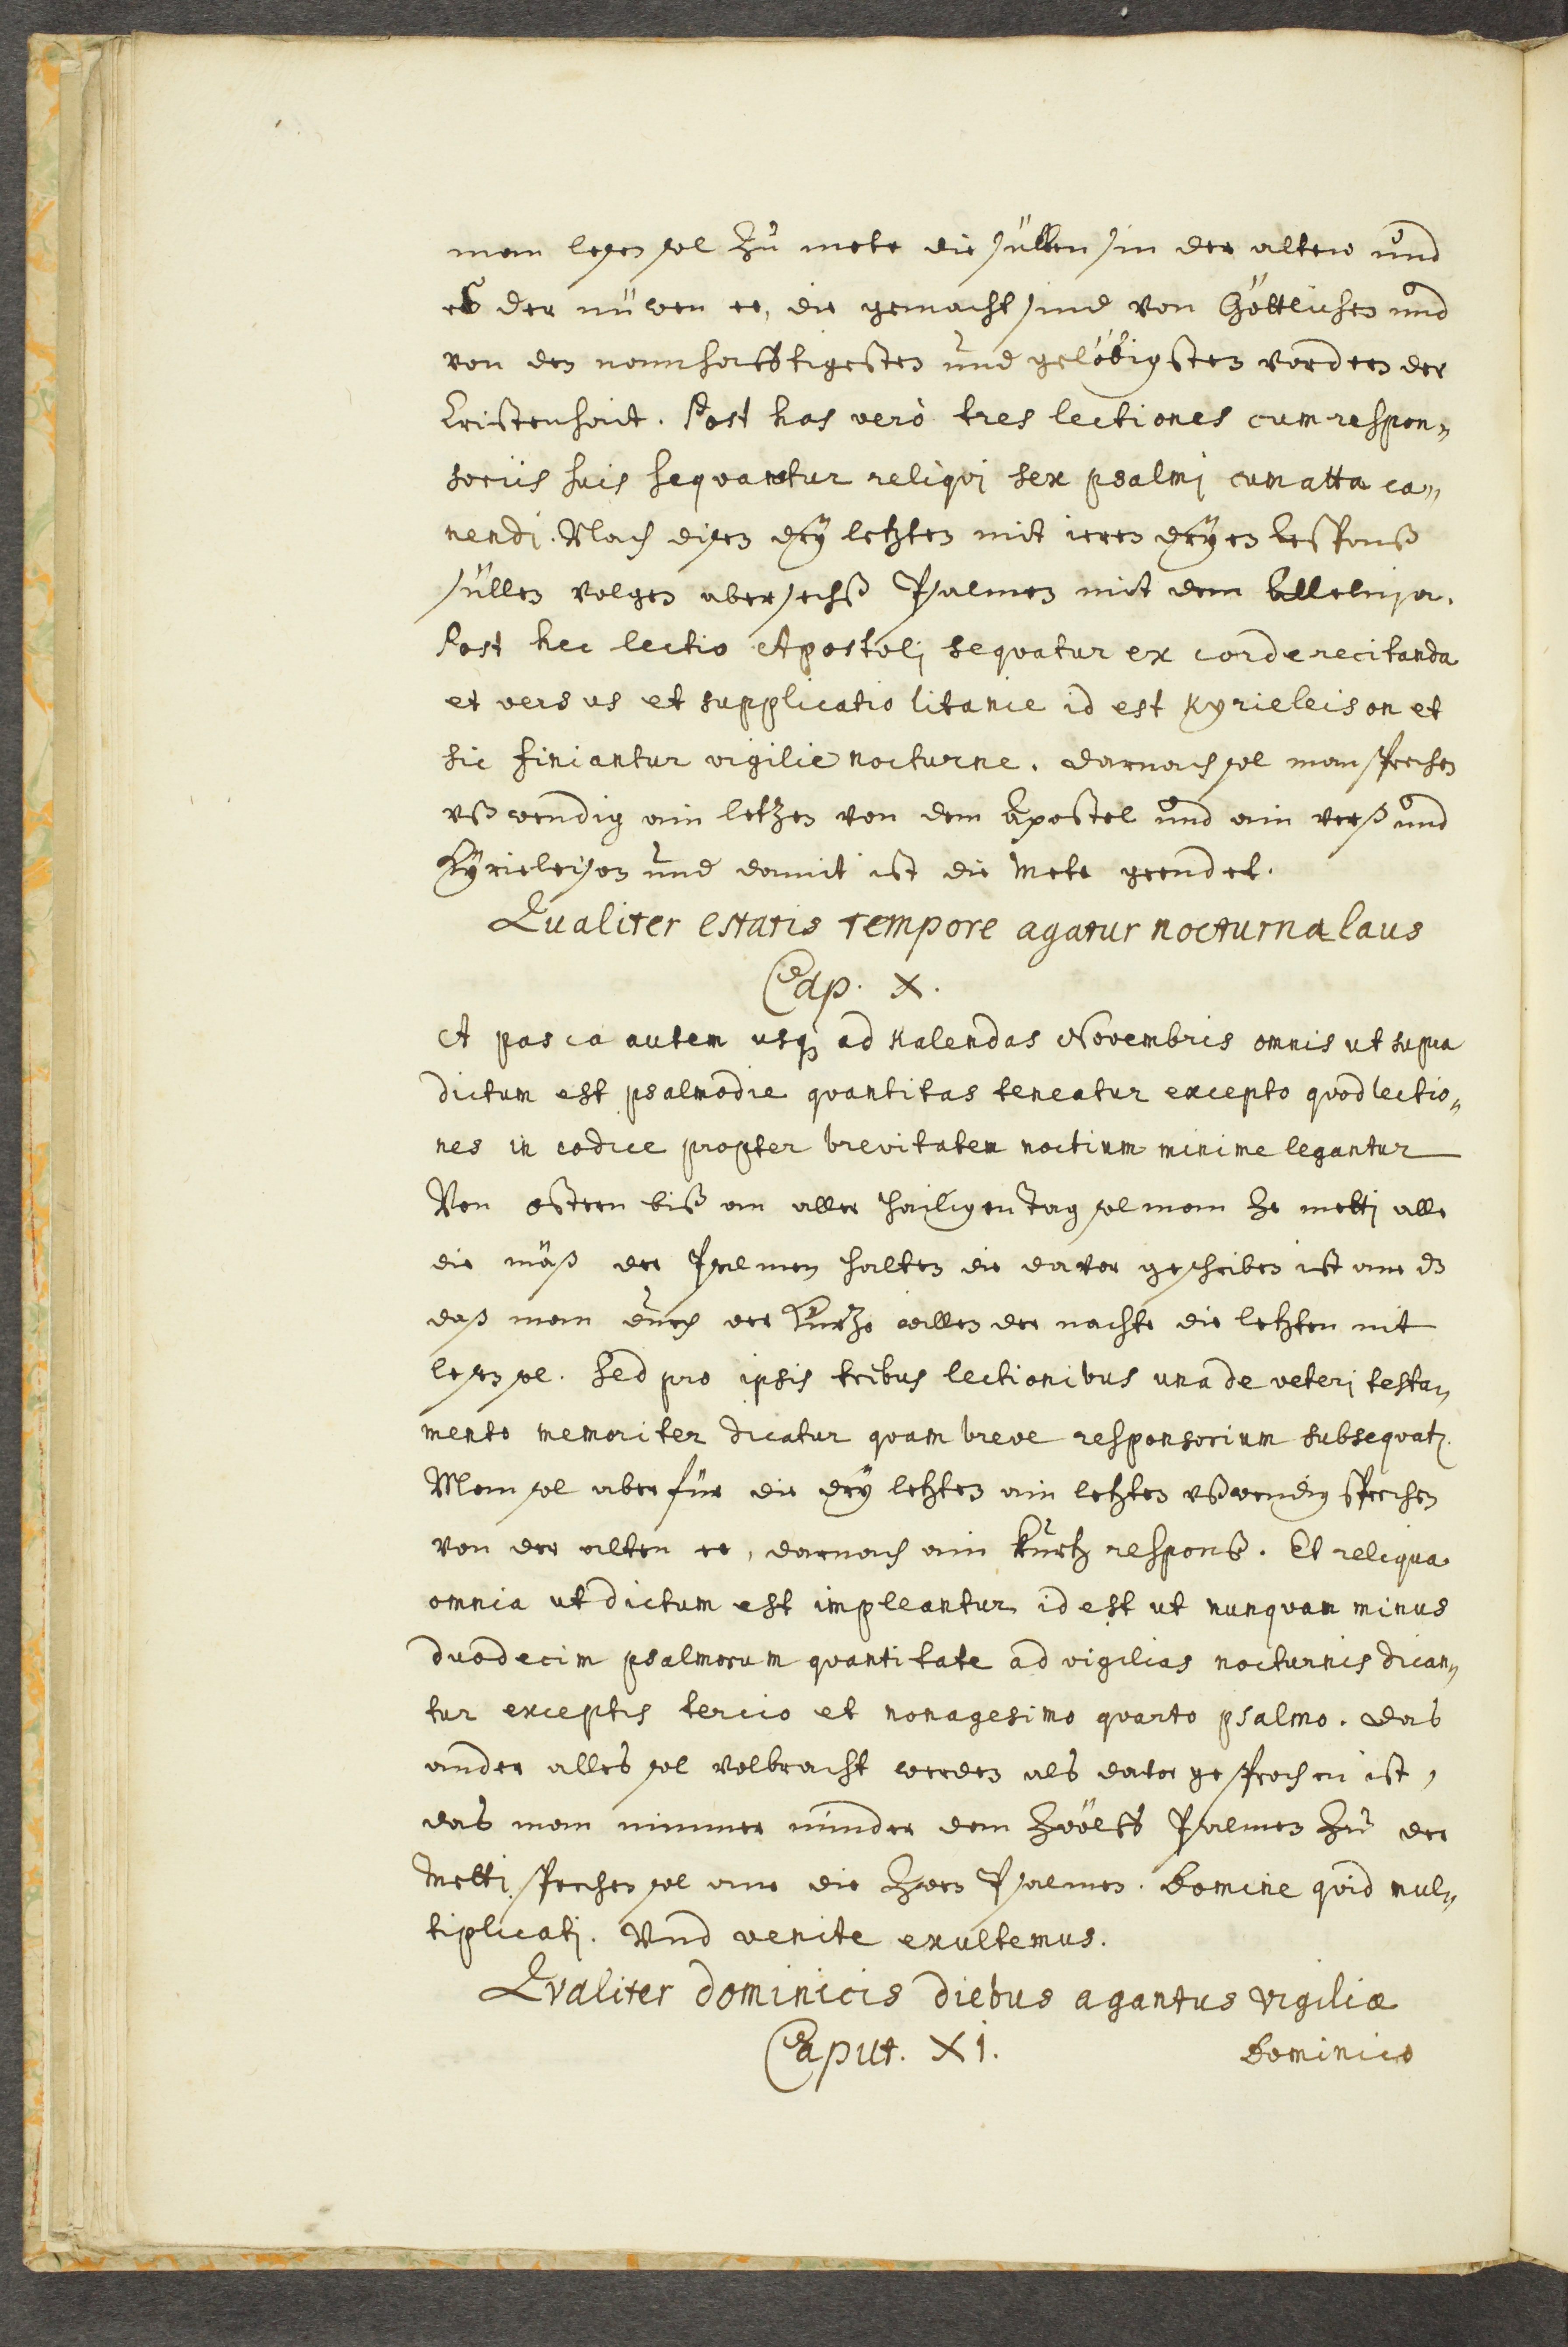 man lesen sol zů mete die süllen sin der alten und
eß der nüwen ee, die gemacht sind von Göttlichen und
von den namhafftigesten und gelöbigsten vordern der
Cristenhait. Post has verò tres lectiones cum respon„
soriis suis sequantur reliqvi sex psalmi cum alla ca„
nendi. Nach disen dry letzten mit ieren dryen Responß
süllen volgen aber sechß Psalmen mit dem Alleluja.
Post hec lectio Apostoli sequatur ex corde recitanda
et versus et supplicatio litanie id est Kyrieleison et
sic finiantur vigilie nocturne. darnach sol man sprechen
vßwendig ain letzen von dem Apostel und ain verß und
Kyrieleison und damit ist die Mete geendet.
Qualiter estatis tempore agatur nocturna laus
Cap. X.
A pasca autem usq; ad Kalendas Novembris omnis ut supra
dictum est psalmodie quantitas teneatur excepto quod lectio„
nes in codice propter brevitatem noctium minime legantur
Von ostern biß an aller Hailigen Tag sol man ze metti alle
die mäß der Psalmen halten die davor geschriben ist ane dz
daß man durch der Kürze willen der nachte die letzten nit
lesen sol. Sed pro ipsis tribus lectionibus una de veteri testa„
mento memoriter dicatur quam breve responsorium subsequatz.
Man sol aber für die dry letzten ain letzten vßwendig sprechen
von der alten ee, darnach ain kurtz responß. Et reliqua
omnia ut dictum est impleantur id est ut nunquam minus
duodecim psalmorum quantitate ad vigilias nocturnis dican„
tur exceptis tercio et nonagesimo quarto psalmo. das
ander alles sol volbracht werden als davor gesprochen ist,
das man nimmer minder dem zwölff Psalmen zů der
Metti sprechen sol ane die zwen Psalmen. Domine quid mul„
tiplicati. Vnd venite exultemus.
Qvaliter dominicis diebus agantus vigiliæ
Caput. XI.
Dominico